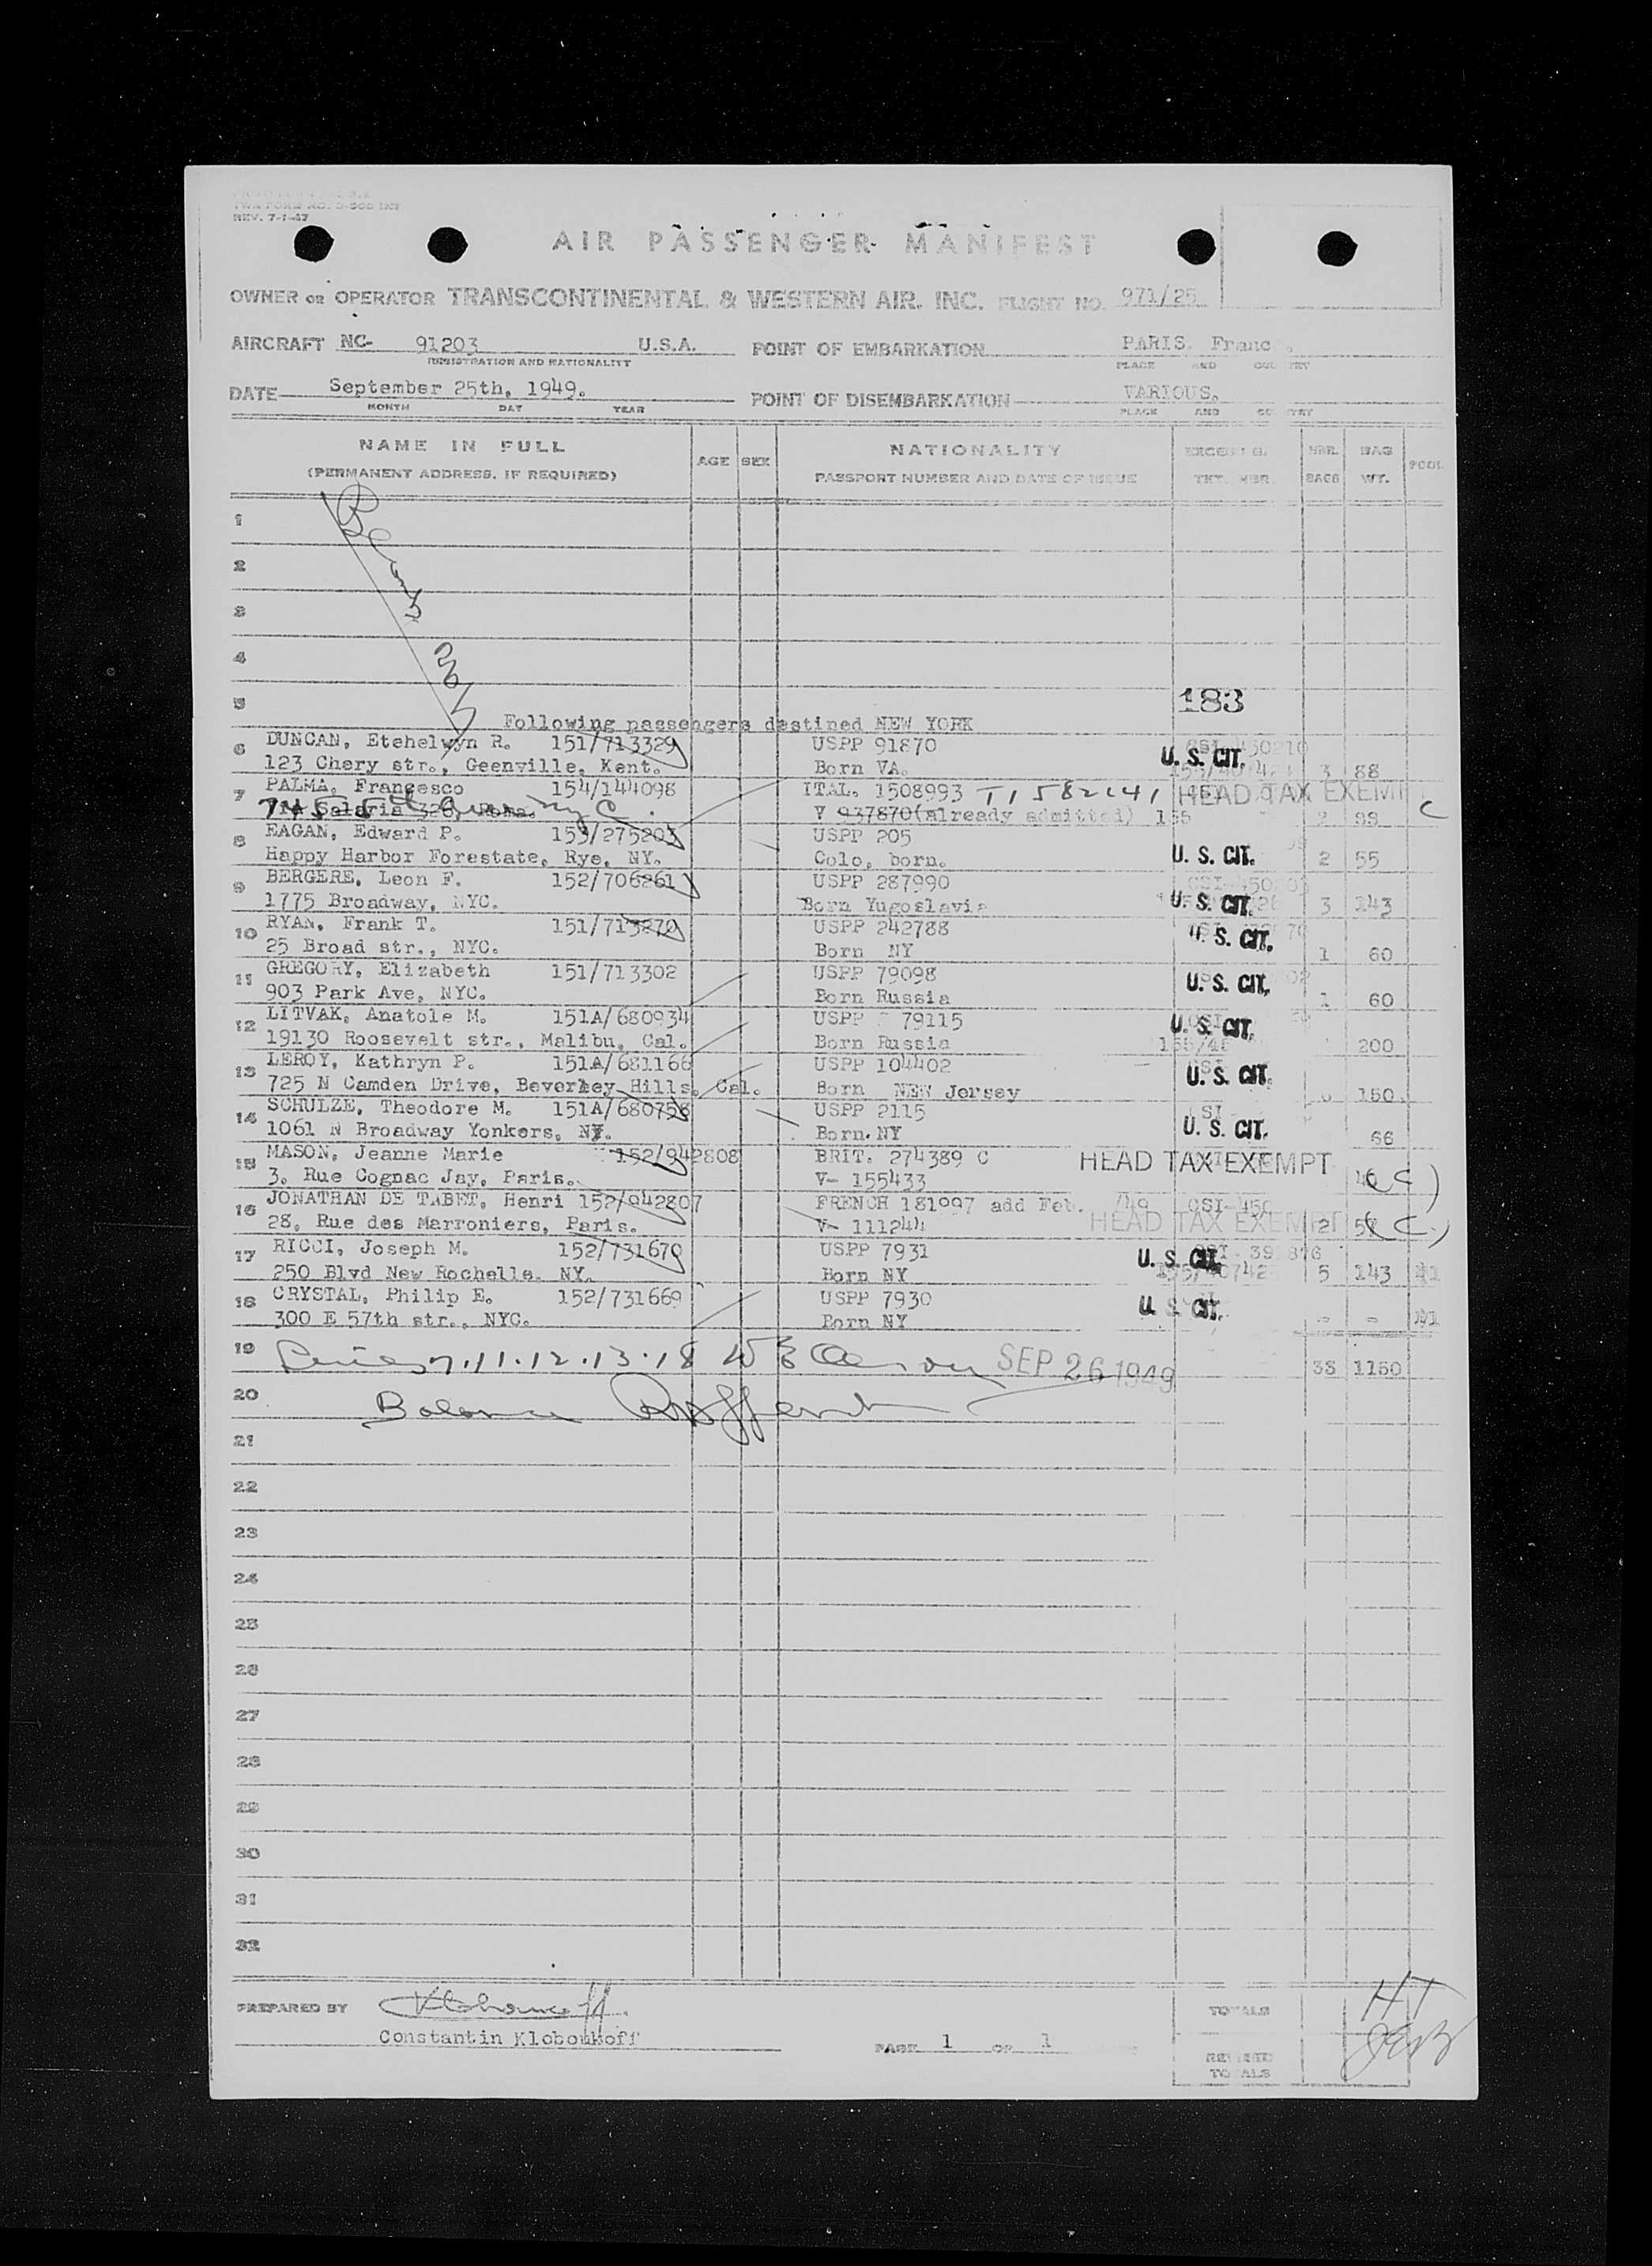 REV. 7-1-47
AIR PASSENGER MANIFEST
OWNER OR OPERATOR TRANSCONTINENTAL & WESTERN AIR. INC. FLIGHT NO. 971/25
AIRCRAFT NC- 91203 U.S.A. POINT OF EMBARKATION PARIS. Franc
REGISTRATION AND NATIONALITY PLACE AND COUNTRY
DATE September 25th, 1949. POINT OF DISEMBARKATION VARIOUS.
MONTH DAY YEAR PLACE AND COUNTRY
NAME IN FULL AGE SEX NATIONALITY NBR. BAG
(PERMANENT ADDRESS, IF REQUIRED) PASSPORT NUMBER AND DATE OF ISSUE TKT. NBR. BAGS WT.
1
2
3
4
5 183
Following passengers destined NEW YORK
6 DUNCAN, Etehelwyn R. 151/713329 USPP 91870 U. S. CIT.
123 Chery str., Geenville, Kent. Born VA. 3 88
7 PALMA, Francesco 154/144098 ITAL. 1508993 HEAD TAX EXEMPT
Salaria 326, Roma. V 937870(already admitted) 155 2 99 C
8 EAGAN, Edward P. 153/275203 USPP 205 U. S. CIT.
Happy Harbor Forestate, Rye, NY. Colo, born. 2 55
9 BERGERE, Leon F. 152/706261 USPP 287990
1775 Broadway, NYC. Born Yugoslavia U. S. CIT. 3 143
10 RYAN, Frank T. 151/713270 USPP 242788 U. S. CIT.
25 Broad str., NYC. Born NY 1 60
11 GREGORY, Elizabeth 151/713302 USPP 79098 U. S. CIT.
903 Park Ave, NYC. Born Russia 1 60
12 LITVAK, Anatole M. 151A/680934 USPP 79115 U. S. CIT.
19130 Roosevelt str., Malibu, Cal. Born Russia 200
13 LEROY, Kathryn P. 151A/681166 USPP 104402 U. S. CIT.
725 N Camden Drive, Beverley Hills, Cal. Born NEW Jersey 150
14 SCHULZE, Theodore M. 151A/680758 USPP 2115 U. S. CIT.
1061 N Broadway Yonkers, NY. Born NY 66
15 MASON, Jeanne Marie 152/942808 BRIT. 274389 C HEAD TAX EXEMPT
3, Rue Cognac Jay, Paris. V- 155433 (C)
16 JONATHAN DE TABET, Henri 152/942807 FRENCH 181997 add Feb. /49
28, Rue des Marroniers, Paris. V- 111244 HEAD TAX EXEMPT 2 57 (C.)
17 RICCI, Joseph M. 152/731670 USPP 7931 U. S. CIT.
250 Blvd New Rochelle, NY. Born NY 5 143
18 CRYSTAL, Philip E. 152/731669 USPP 7930 U. S. CIT.
300 E 57th str., NYC. Born NY
19 7.11.12.13.18 SEP 26 1949 38 1150
20 Balance
21
22
23
24
25
26
27
28
29
30
31
32
PREPARED BY TOTALS HT
Constantin Kloboukoff PAGE 1 OF 1
REVISED
TOTALS